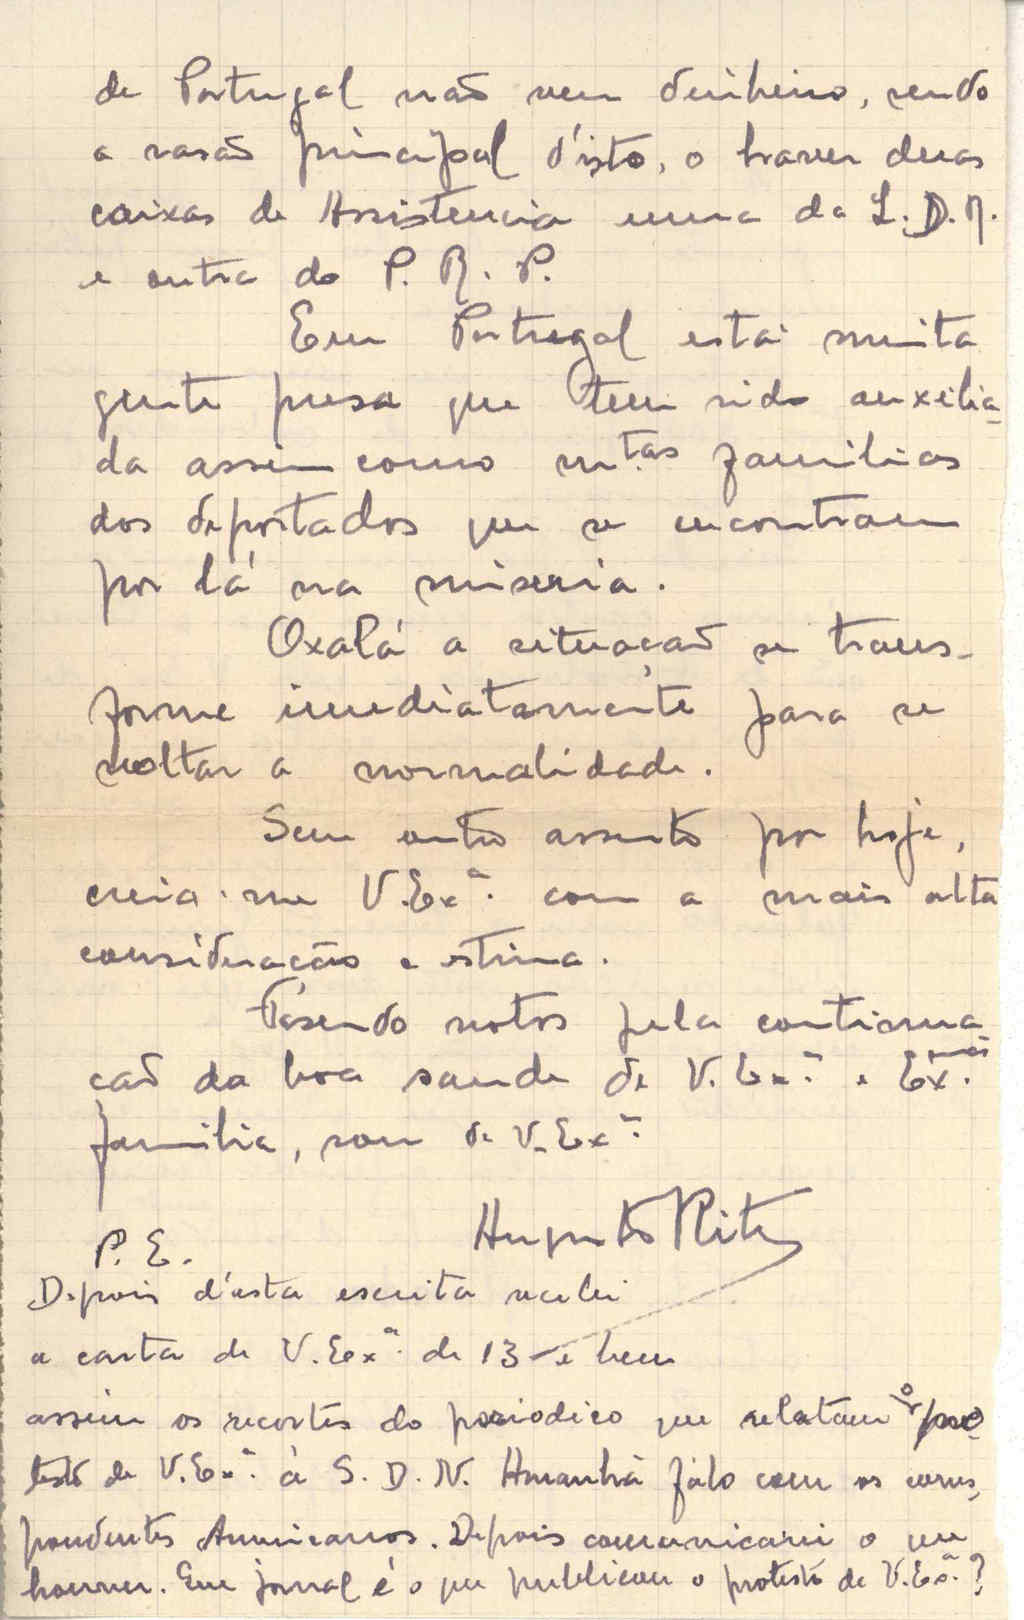 de Portugal não vem dinheiro, sendo
a rasão principal d'isto, o haver duas
caixas de Assistencia uma da L.D.R.
e outra do P. R. P.
Em Portugal está muita
gente presa que tem sido auxilia-
da assim como mtas familias
dos deportados que se encontram
por lá na miseria.
Oxalá a situação se trans-
forme imediatamente para se
voltar a normalidade.
Sem outro assunto por hoje,
creia-me V.Exª. com a mais alta
consideração e estima.
Fasendo votos pela continua
ção da boa saude de V. Exª. e Exma.
familia, sou de V. Exª.
P. E.
Depois d'esta escrita recebi
a carta de V. Exª. de 13 e bem
assim os recortes do periodico que relatam o pro-
testo de V. Exª. à S. D. N. Amanhã falo com os corres-
pondentes Americanos. Depois comunicarei o que
houver. Em jornal é o que publicou o protesto de V. Exª.?